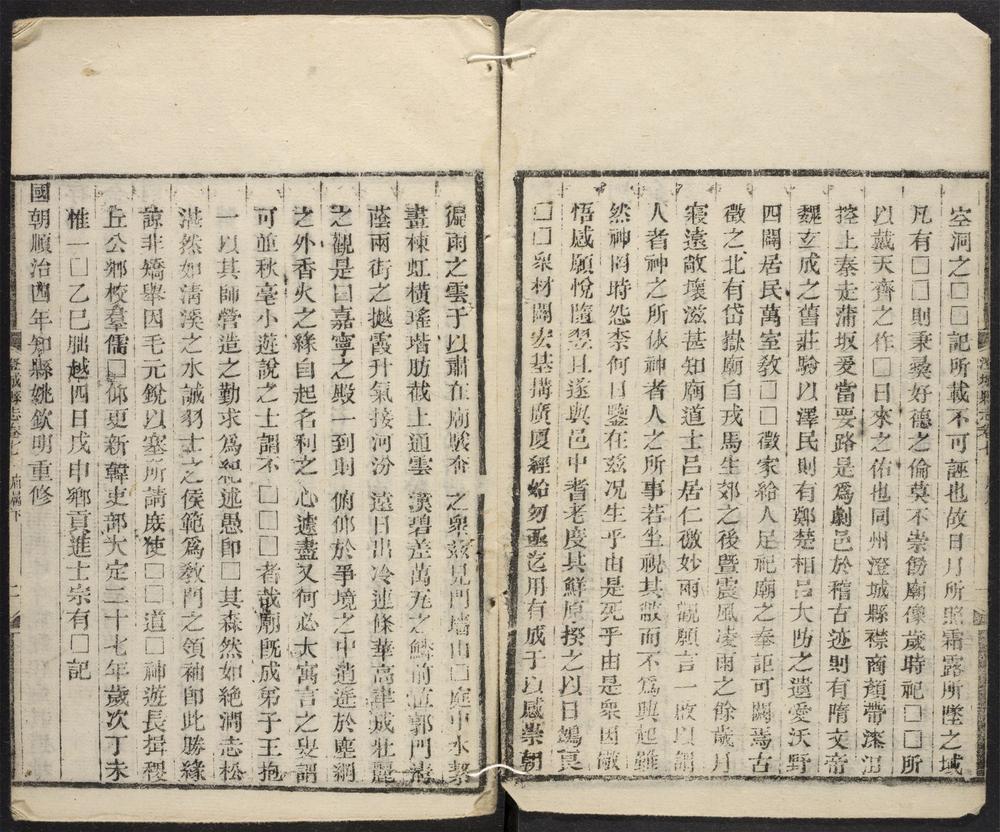 空洞之□□記所載不可誣也故日月所照霜露所墜之域
凡有□□則秉彝好德之倫莫不崇飭廟像歲時祀□□所
以戴天齊之作□日來之佑也同州澄城縣襟商顏帶漆沮
控上秦走蒲坂爰當要路是爲劇邑於稽古迹則有隋文帝
魏玄成之舊莊驗以澤民則有鄭楚相呂大防之遺愛沃野
四闢居民萬室敎□□徵家給人足祀廟之奉詎可闕焉古
徵之北有岱嶽廟自戎馬生郊之後曁震風凌雨之餘歲月
寖遠敞壞滋甚知廟道士呂居仁微妙雨觀願言一啟以謂
人者神之所依神者人之所事若坐視其敝而不爲興起雖
然神罔時怨柰何日鑒在茲况生乎由是死乎由是衆因啟
悟感願悅隨翌日遂與邑中耆老度其鮮原揆之以日鳩良
□□衆材闢宏基搆廣厦經始勿亟迄用有成于以感崇朝
徧雨之雲于以肅在廟駿奔之衆茲見門墻山□庭中水縈
畫棟虹橫瑤堦肪截上通雲漢碧差萬瓦之鱗前直郭門淸
蔭兩街之樾霞升氣接河汾遠日出冷連條華高韋威壯麗
之觀是曰嘉寧之殿一到則俯仰於爭境之中逍遙於塵網
之外香火之緣自起名利之心遽盡又何必大寓言之叟謂
可並秋毫小遊說之士謂不□□□者哉廟旣成弟子王抱
一以其師營造之勤求爲紀述愚卽□其森然如絶澗志松
湛然如淸溪之水誠羽士之侯範爲敎門之領袖卽此勝緣
諒非矯舉因毛元銳以塞所請庶使□□道□神遊長揖稷
丘公鄉校羣儒□仰更新韓吏部大定二十七年歲次丁未
惟一□乙巳朏越四日戊申鄉貢進士宗有□記
國朝順治四年知縣姚欽明重修
澄城縣志卷七 廟屬下